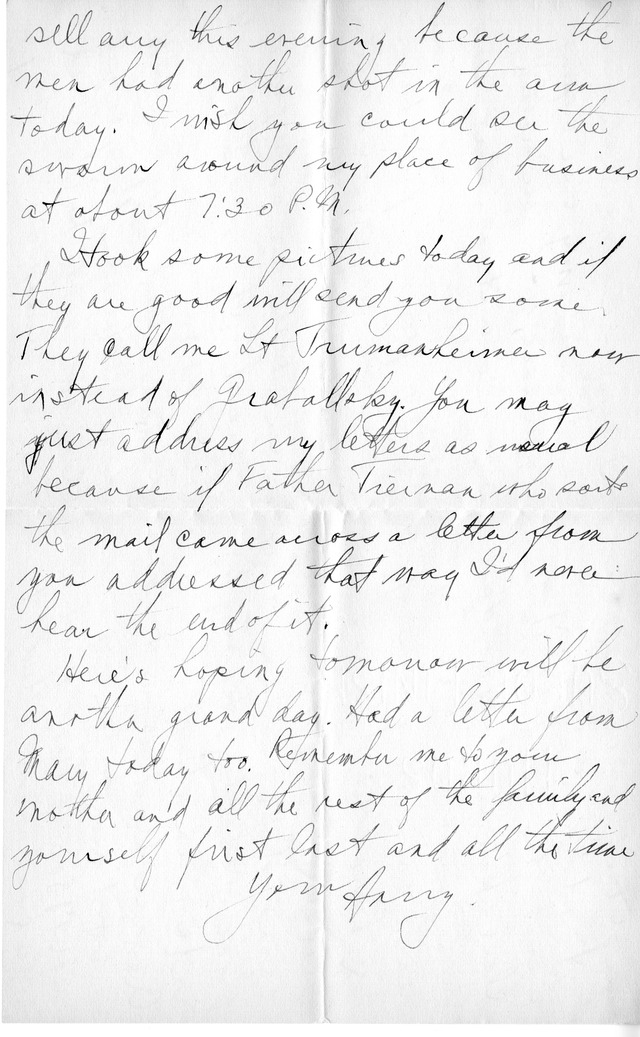 sell any this evening because the
men had another shot in the arm
today. I wish you could see the
swarm around my place of business
at about 7:30 P.M.
I took some pictures today and if
they are good will send you some.
They call me Lt Trumanheimer now
instead of Graballsky. You may
just address my letters as usual
because if Father Tiernan who sorts
the mail came across a letter from
you addressed that way I'd never
hear the end of it.
Here's hoping tomorrow will be
another grand day. Had a letter from
Mary today too. Remember me to your
mother and all the rest of the family and
yourself first last and all the time
Your Harry.